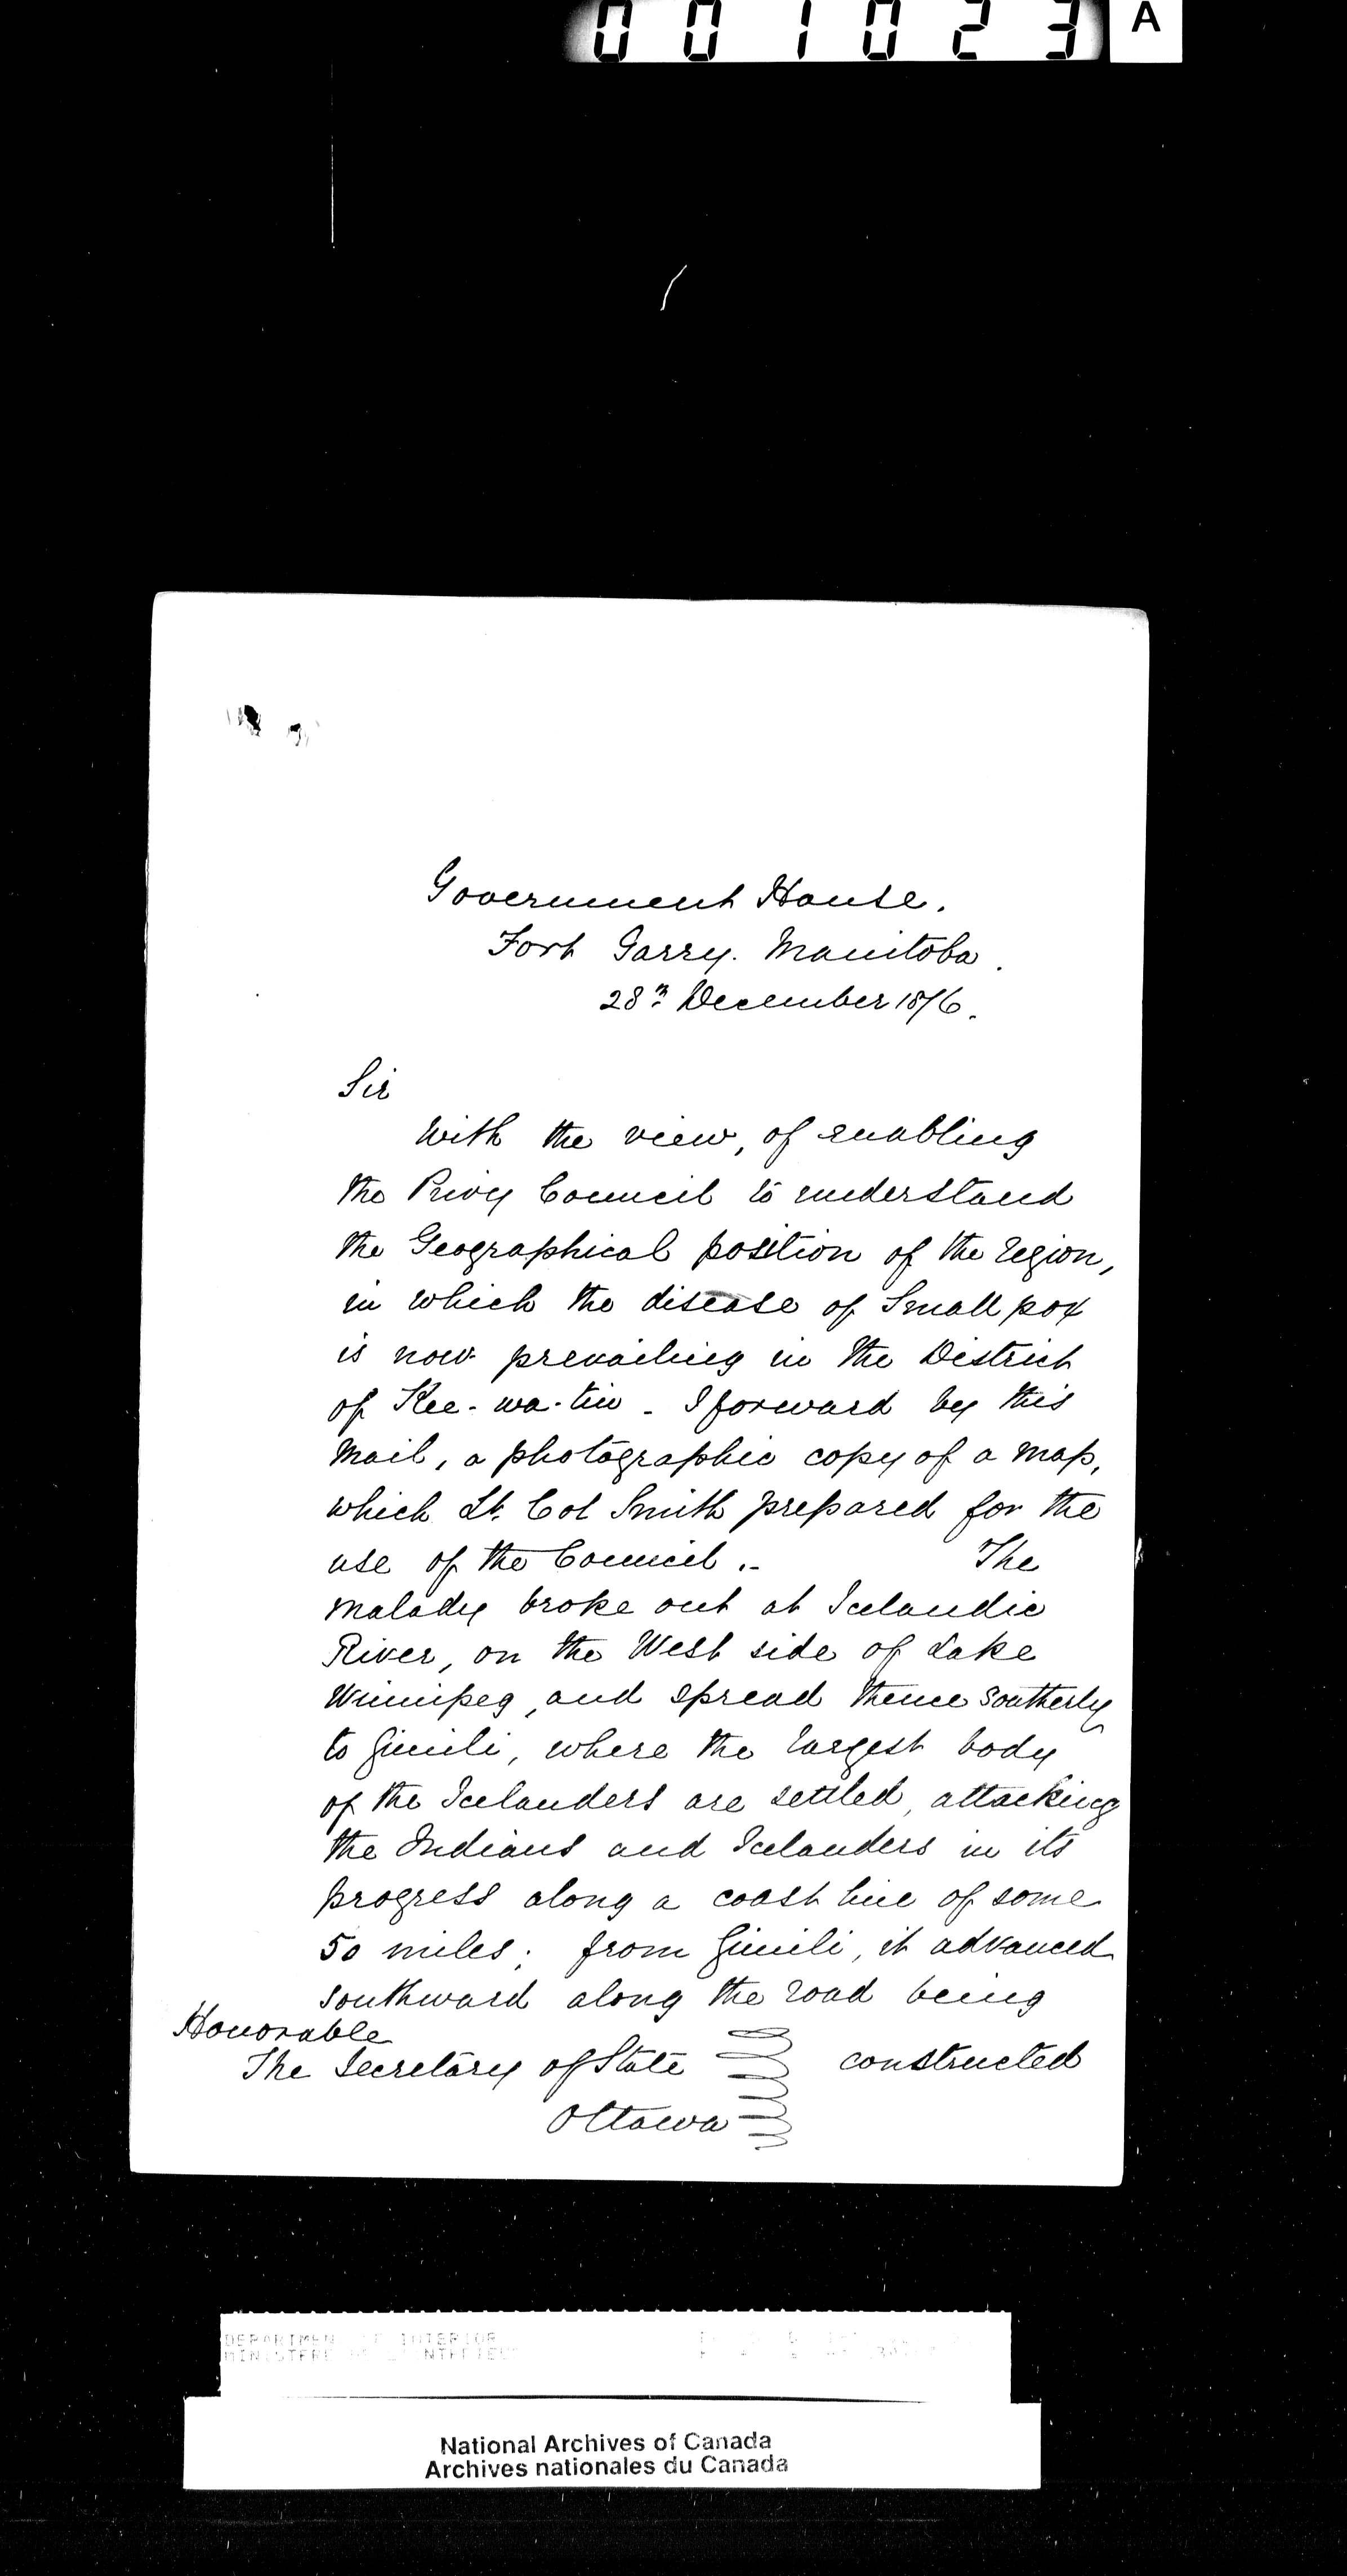 001023 A
Government House.
Fort Garry. Manitoba.
28th December 1876.
Sir
With the view, of enabling
the Privy Council to understand
the Geographical position of the region,
in which the disease of Small pox
is now prevailing in the District
of Kee-wa-tin - I forward by this
Mail, a photographic copy of a Map,
which Lt. Col Smith prepared for the
use of the Council .- The
malady broke out at Icelandic
River, on the West side of Lake
Winnipeg, and spread thence southerly
to Gimili, where the largest body
of the Icelanders are settled, attacking
the Indians and Icelanders in its
progress along a coast line of some
50 miles; from Gimili, it advanced
southward along the road being
constructed
Honorable
The Secretary of State
Ottawa
National Archives of Canada
Archives nationales du Canada